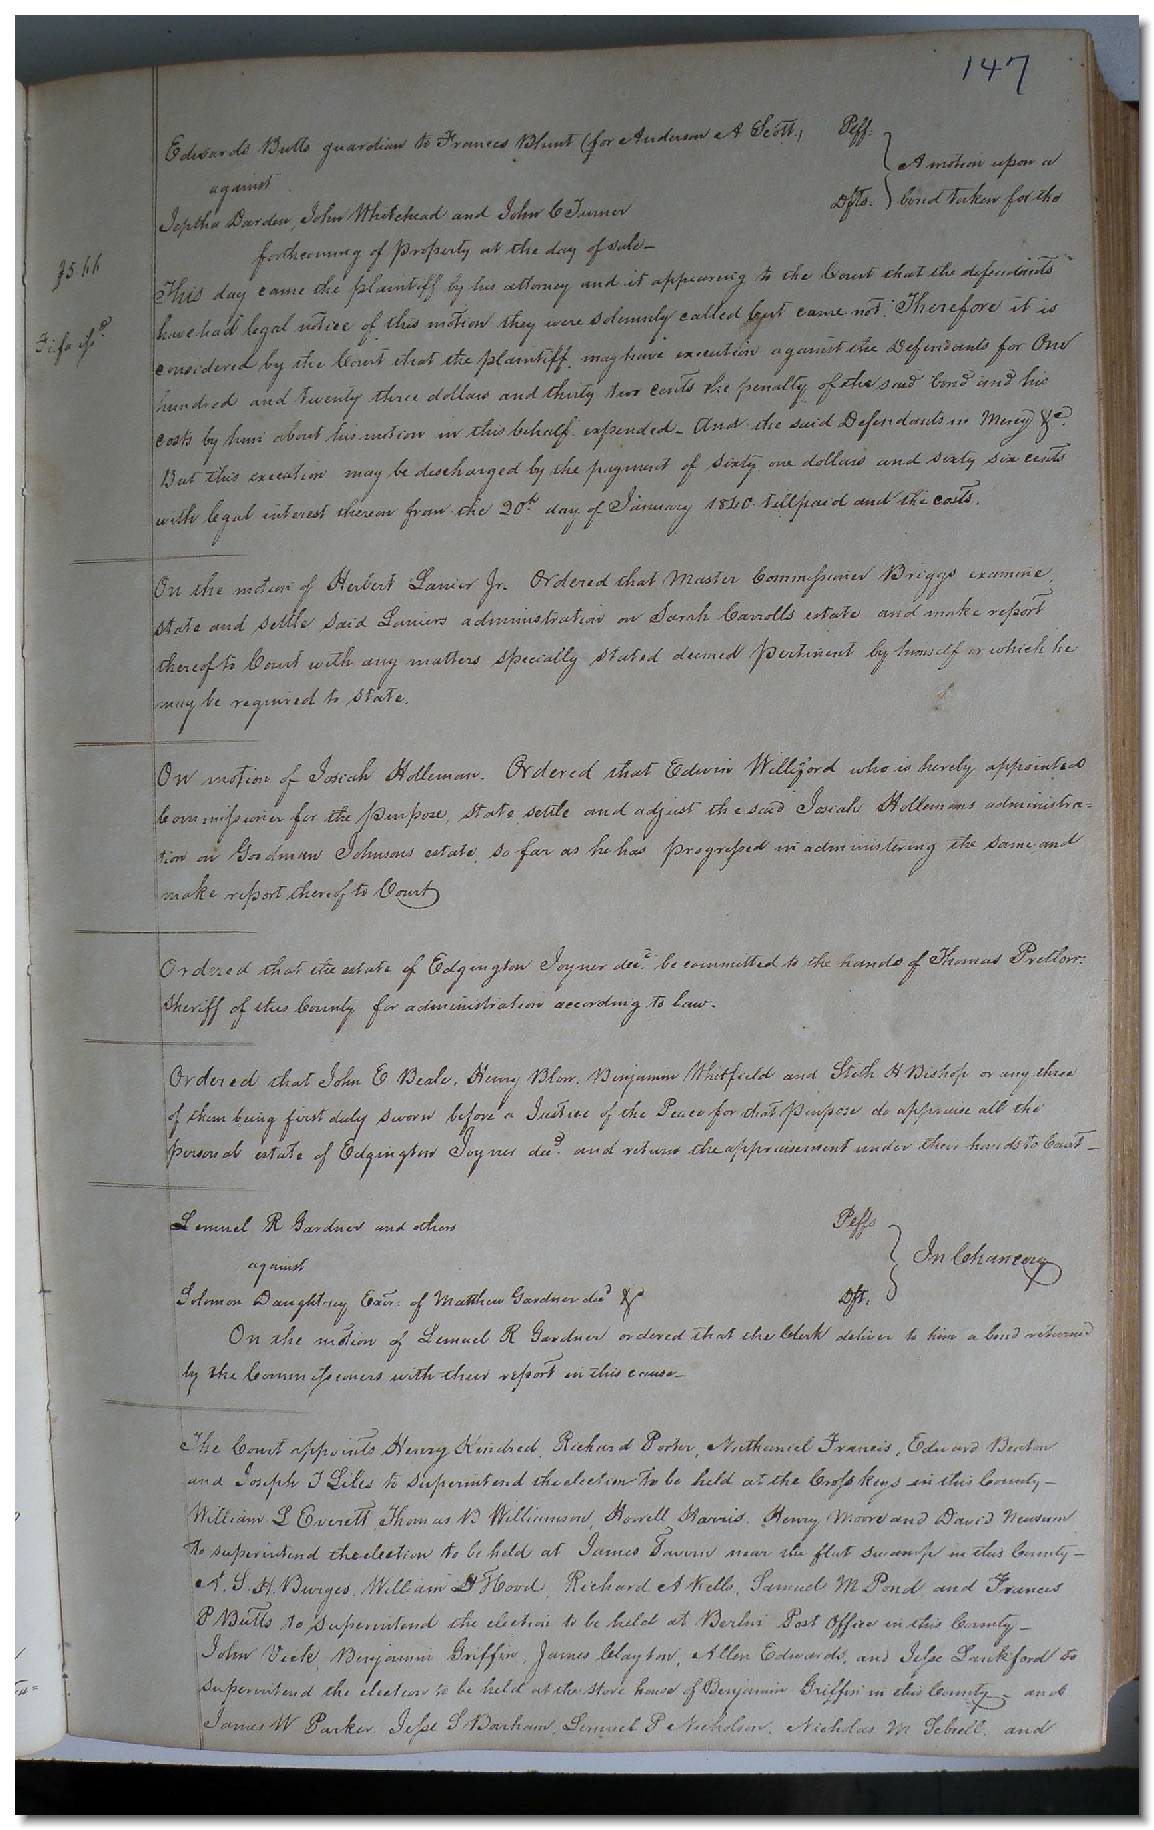 147
Edwards Butts guardian to Frances Blunt (for Anderson A Scott) Plff.
against
A motion upon a
Jeptha Darden, John Whitehead and John C Turner Dfts. bond taken for the
forthcoming of property at the day of sale—
This day came the plaintiff by his attorney and it appearing to the Court that the defendants
have had legal notice of this motion they were solemnly called but came not: Therefore it is
considered by the Court that the plaintiff may have execution against the Defendants for One
hundred and twenty three dollars and thirty two cents the penalty of the said bond and his
costs by him about his motion in this behalf expended— And the said Defendants in Mercy &c.
But this execution may be discharged by the payment of sixty one dollars and sixty six cents
with legal interest thereon from the 20th day of January 1840 till paid and the costs.
On the motion of Herbert Lanier Jr. Ordered that Master Commissioner Briggs examine
state and settle said Laniers administration on Sarah Carrolls estate and make report
thereof to Court with any matters specially stated deemed pertinent by himself or which he
may be required to state.
On motion of Josiah Holleman. Ordered that Edwin Williford who is hereby appointed
Commissioner for the purpose, state settle and adjust the said Josiah Hollemans administra-
tion on Goodman Johnsons estate, so far as he has progressed in administering the same and
make report thereof to Court
Ordered that the estate of Edgington Joyner decd. be committed to the hands of Thomas Pretlow
Sheriff of this County for administration according to law.
Ordered that John E Beale, Henry Blow, Benjamin Whitfield and Stith H Bishop or any three
of them being first duly sworn before a Justice of the Peace for that purpose do appraise all the
personal estate of Edgington Joyner decd. and return the appraisement under their hands to Court—
Lemuel R Gardner and others Plffs
against
In Chancery
Solomon Daughtrey Exor. of Matthew Gardner decd &c Dft.
On the motion of Lemuel R Gardner ordered that the Clerk deliver to him a bond returned
by the Commissioners with their report in this cause—
The Court appoints Henry Kindred, Richard Porter, Nathaniel Francis, Edward Beaton
and Joseph T Liles to superintend the election to be held at the Cross keys in this County—
William L Everett, Thomas B Williamson, Howell Harris, Henry Moore and David Newsum
to superintend the election to be held at James Tavern near the flat swamp in this County—
A. S. H. Burges, William H Hood, Richard A Kello, Samuel M Pond and Francis
P Butts to superintend the election to be held at Berlin Post Office in this County—
John Vick, Benjamin Griffin, James Clayton, Allen Edwards, and Jesse Lankford to
superintend the election to be held at the store house of Benjamin Griffin in this County— and
James W Parker, Jesse S Barham, Lemuel P Nicholson, Nicholas M Sebrell, and